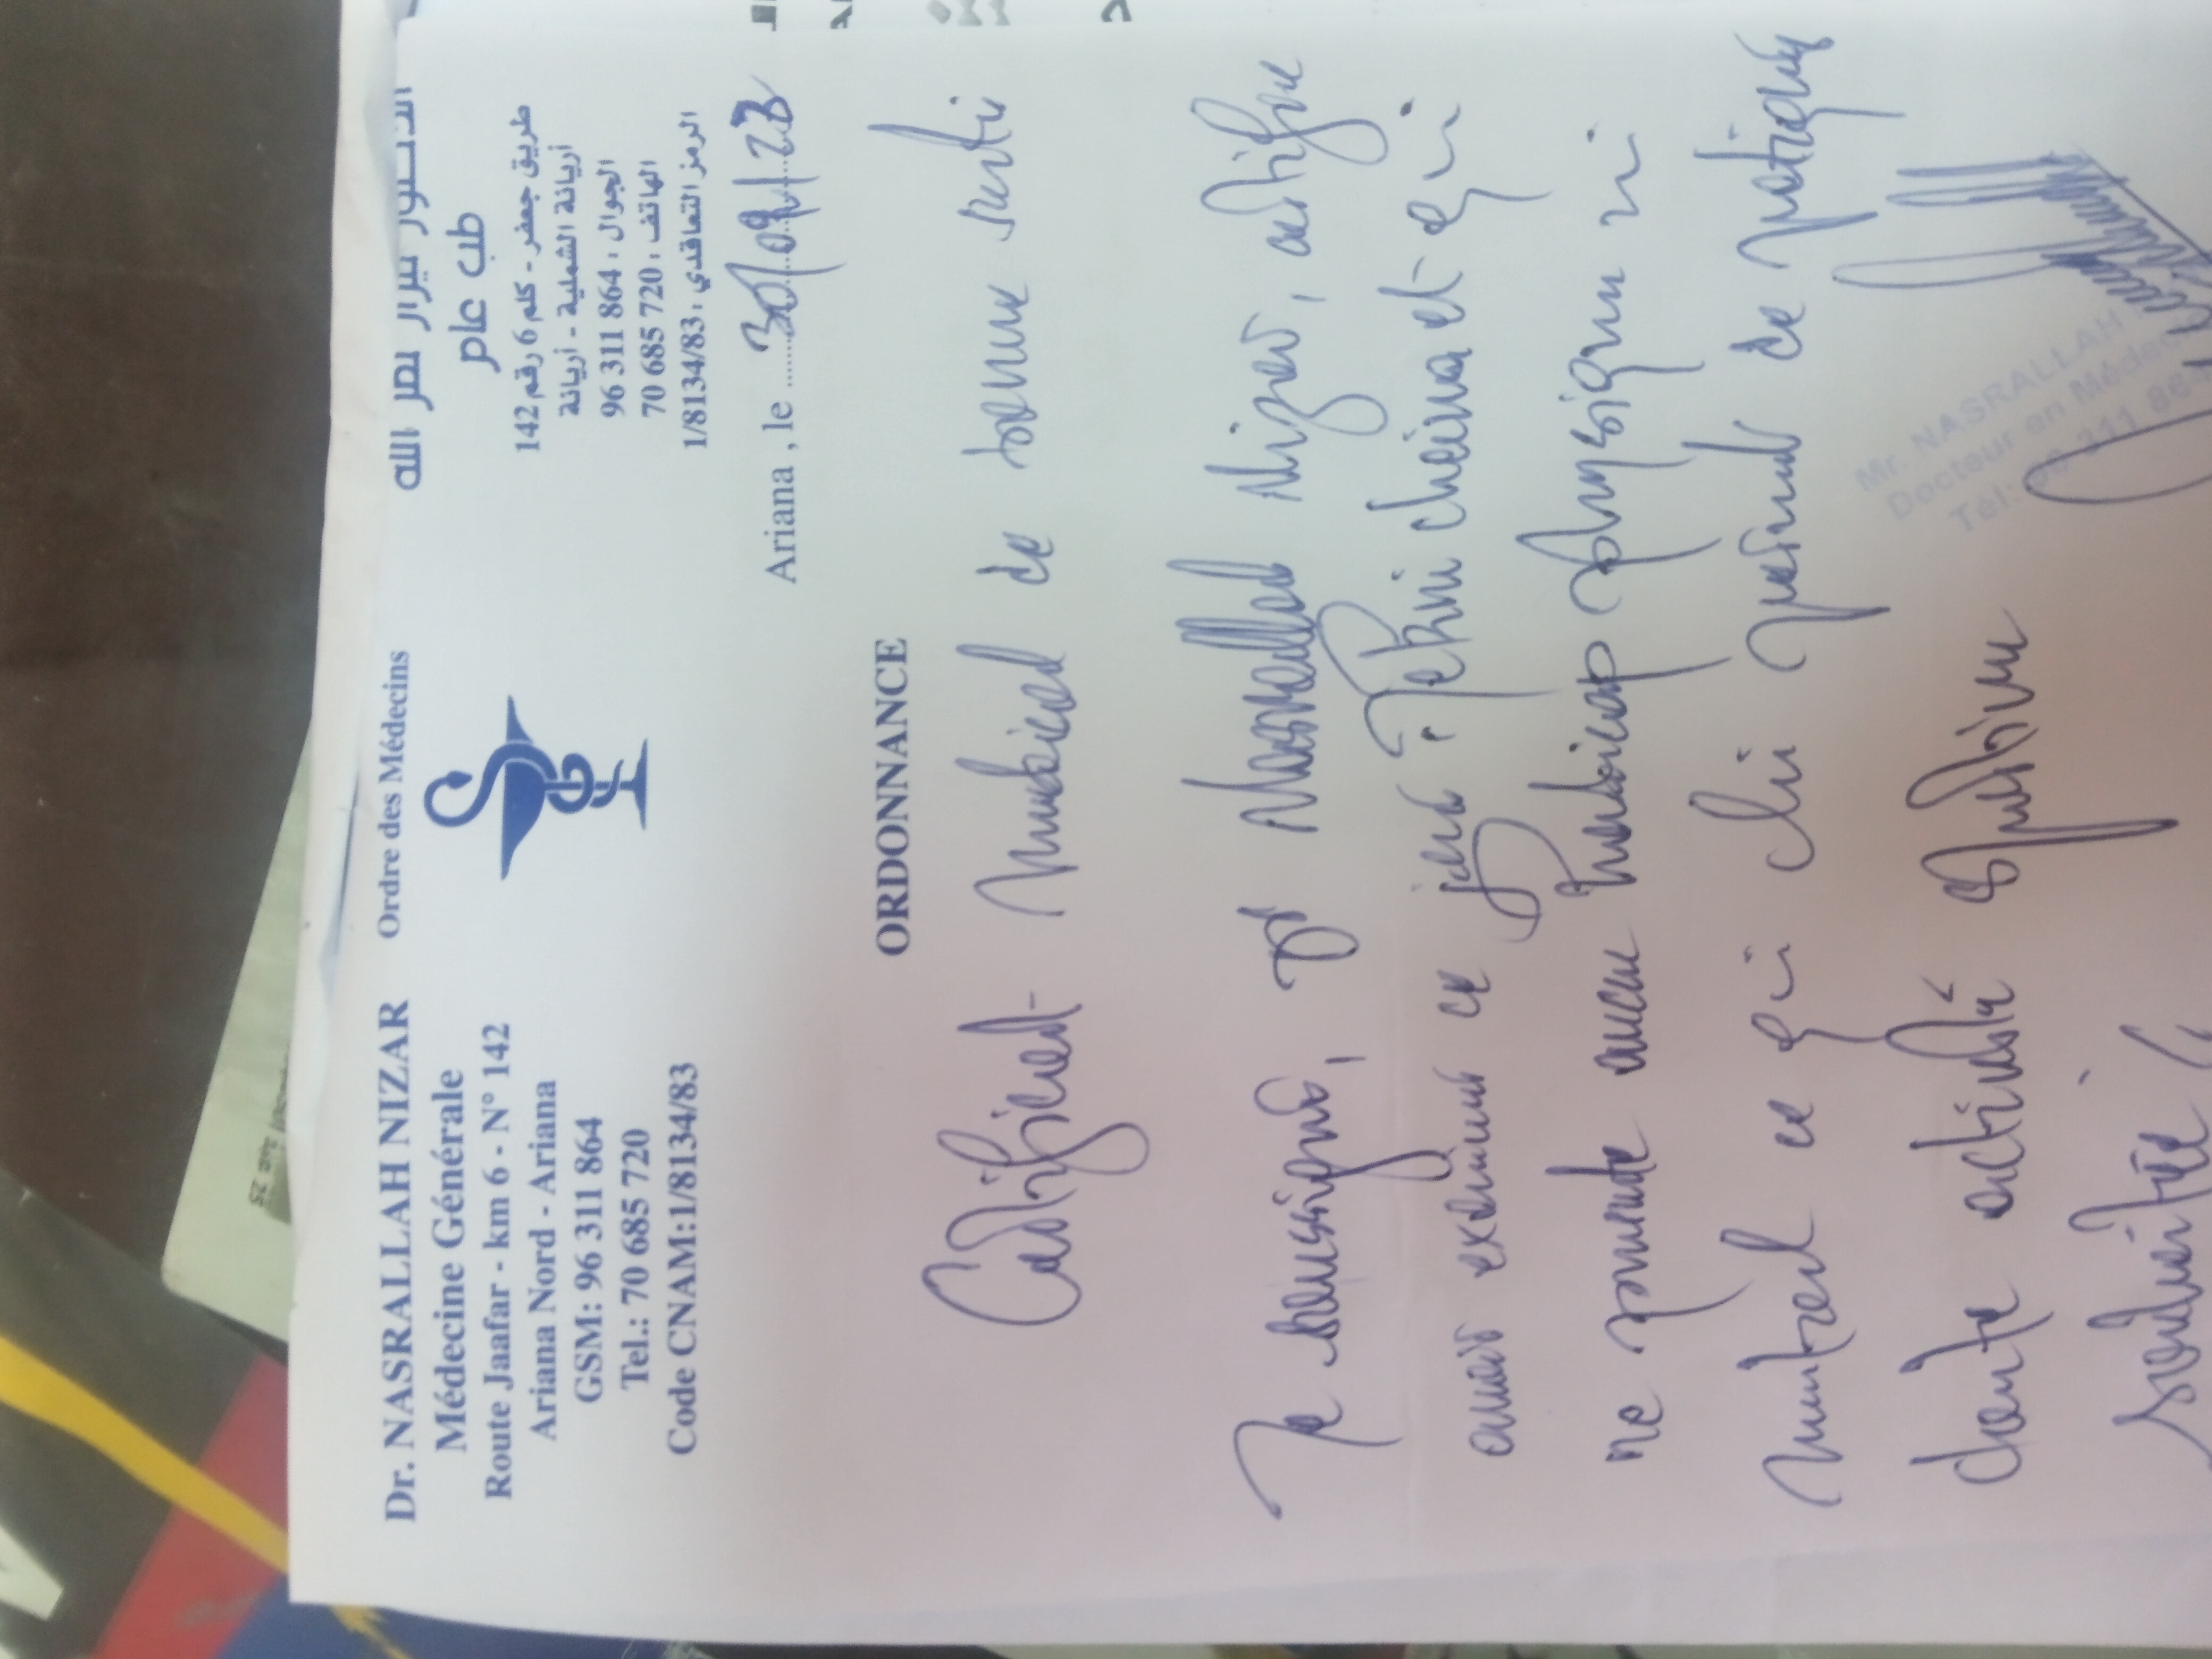 Dr. NASRALLAH NIZAR
Médecine Générale
Route Jaafar - km 6 - N° 142
Ariana Nord - Ariana
GSM: 96 311 864
Tel.: 70 685 720
Code CNAM:1/8134/83
Ordre des Médecins
الدكتور نيزار نصر الله
طب عام
طريق جعفر - كلم 6 رقم 142
أريانة الشمالية - أريانة
الجوال : 864 311 96
الهاتف : 720 685 70
الرمز التعاقدي : 1/8134/83
Ariana , le 30/09/23
ORDONNANCE
Certificat Médical de bonne santé
Je soussigné, Dr Nasrallah Nizar, certifie
avoir examiné ce jour : cheima et qui
ne présente aucun handicap physique ni
mental ce qui lui permet de pratiquer
toute activité
Mr. NASRALLAH
Docteur en Médec
Tél: 96 311 86